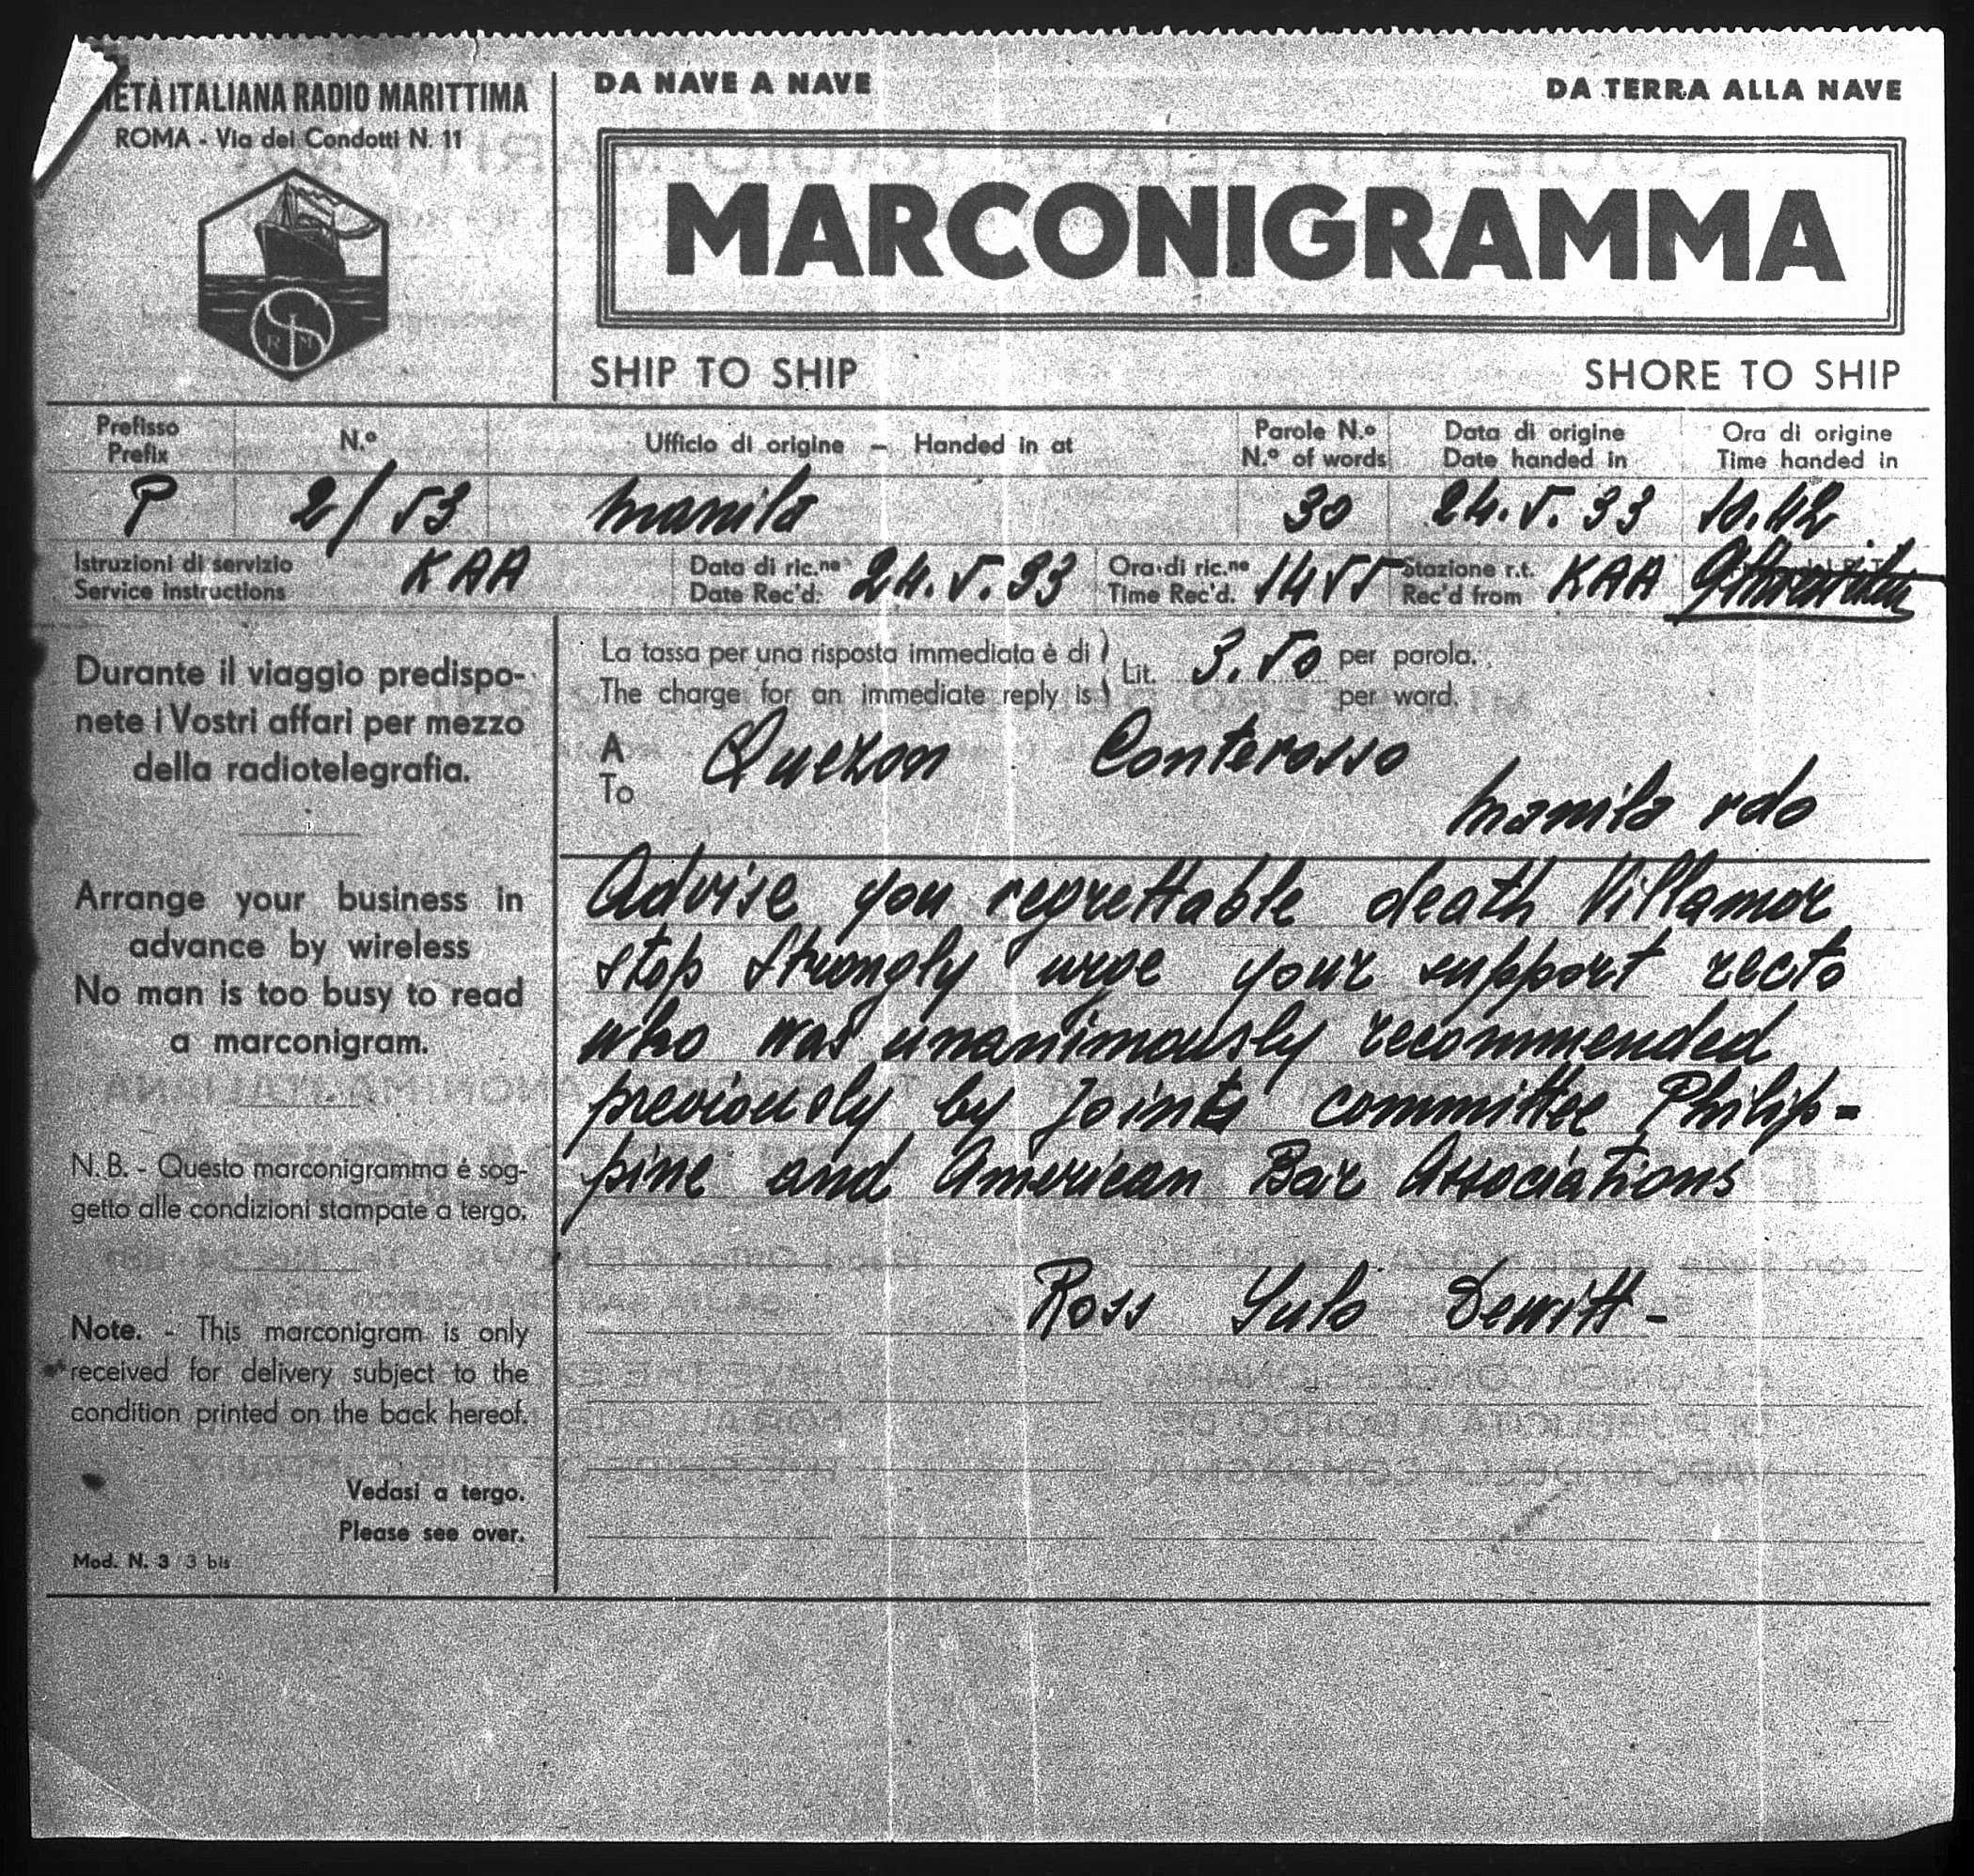 ETÀ ITALIANA RADIO MARITTIMA
ROMA - Via dei Condotti N. 11
R M
DA NAVE A NAVE
DA TERRA ALLA NAVE
MARCONIGRAMMA
SHIP TO SHIP
SHORE TO SHIP
Prefisso
Prefix
N.º
Ufficio di origine - Handed in at
Parole N.º
N.º of words
Data di origine
Date handed in
Ora di origine
Time handed in
P
2/53
Manila
30
24.5.33
10.42
Istruzioni di servizio
Service instructions
KAA
Data di ric.ne
Date Rec'd:
24.5.33
Ora di ric.ne
Time Rec'd.
1455
Stazione r.t.
Rec'd from
KAA
Durante il viaggio predispo-
nete i Vostri affari per mezzo
della radiotelegrafia.
Arrange your business in
advance by wireless
No man is too busy to read
a marconigram.
N.B. - Questo marconigramma é sog-
getto alle condizioni stampate a tergo.
Note. - This marconigram is only
received for delivery subject to the
condition printed on the back hereof.
Vedasi a tergo.
Please see over.
Mod. N. 3 3 bis
La tassa per una risposta immediata è di
The charge for an immediate reply is
Lit. 3.50
per parola.
per word.
A
To
Quezon Conterosso
Manila rdo
Advise you regrettable death Villamor
stop strongly urge your support recto
who was unanimously recommended
previously by joint committee Philip-
pine and American Bar Associations
Ross Yulo Dewitt -